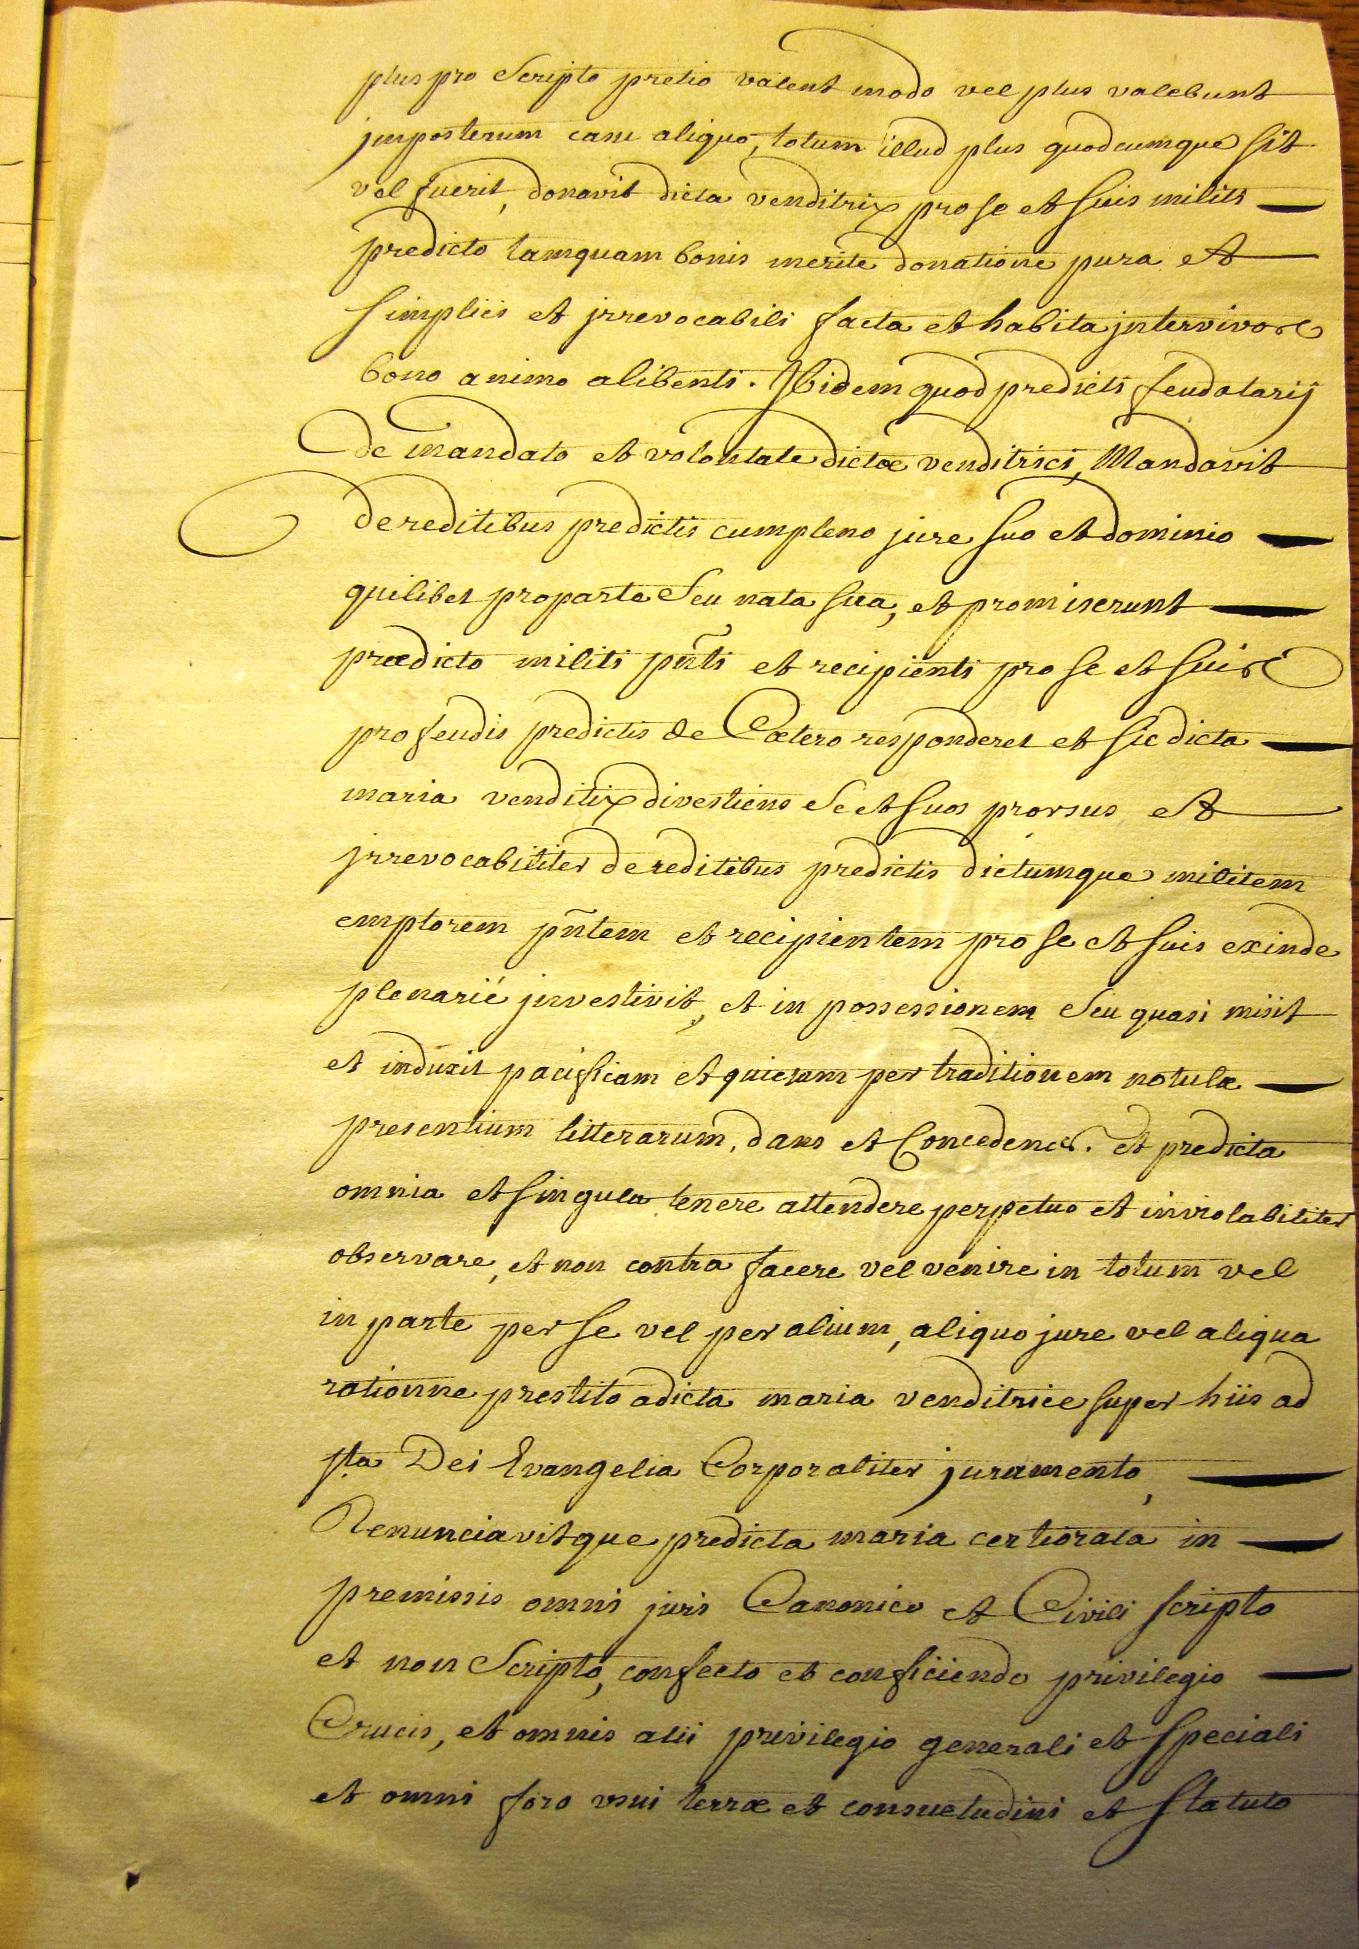 plus pro Scripto pretio valent modo vel plus valebunt
jmposterum casu aliquo, totum illud plus quodcumque sit
vel fuerit, donavit dicta venditrix pro se et suis militi
predicto tamquam bonis merite donatione pura et
simplici et jrrevocabili facta et habita jntervivos
bono animo alibenti. Ibidem quod predicti feudatarij
de mandato et volontate dictæ venditrici, Mandavit
de reditibus predictis cumpleno jure suo et dominio
quilibet proparte Seu nata sua, et promiserunt
prædicto militi pñti et recipienti pro se et suis
pro feudis predictis de Cætero responderet et sic dicta
maria venditix divestiens Se et suos prorsus et
jrrevocabiliter de reditibus predictis dictumque militem
emptorem pñtem et recipientem pro se et suis exinde
plenarié jnvestivit, et in possessionem Seu quasi misit
et induxit pacificam et quietam per traditionem notulæ
presentium litterarum, dans et Concedens. et predicta
omnia et singula tenere attendere perpetuo et inviolabiliter
observare, et non contra facere vel venire in totum vel
in parte per se vel per alium, aliquo jure vel aliqua
rationne prestito adicta maria venditrice super hiis ad
sta Dei Evangelia Corporaliter juramento,
Renunciavitque predicta maria certiorata in
premissis omni juri Canonico et Civili scripto
et non Scripto, confecto et conficiendo privilegio
Crucis, et omnis alii privilegio generali et speciali
et omni foro usui terræ et consuetudini et statuto